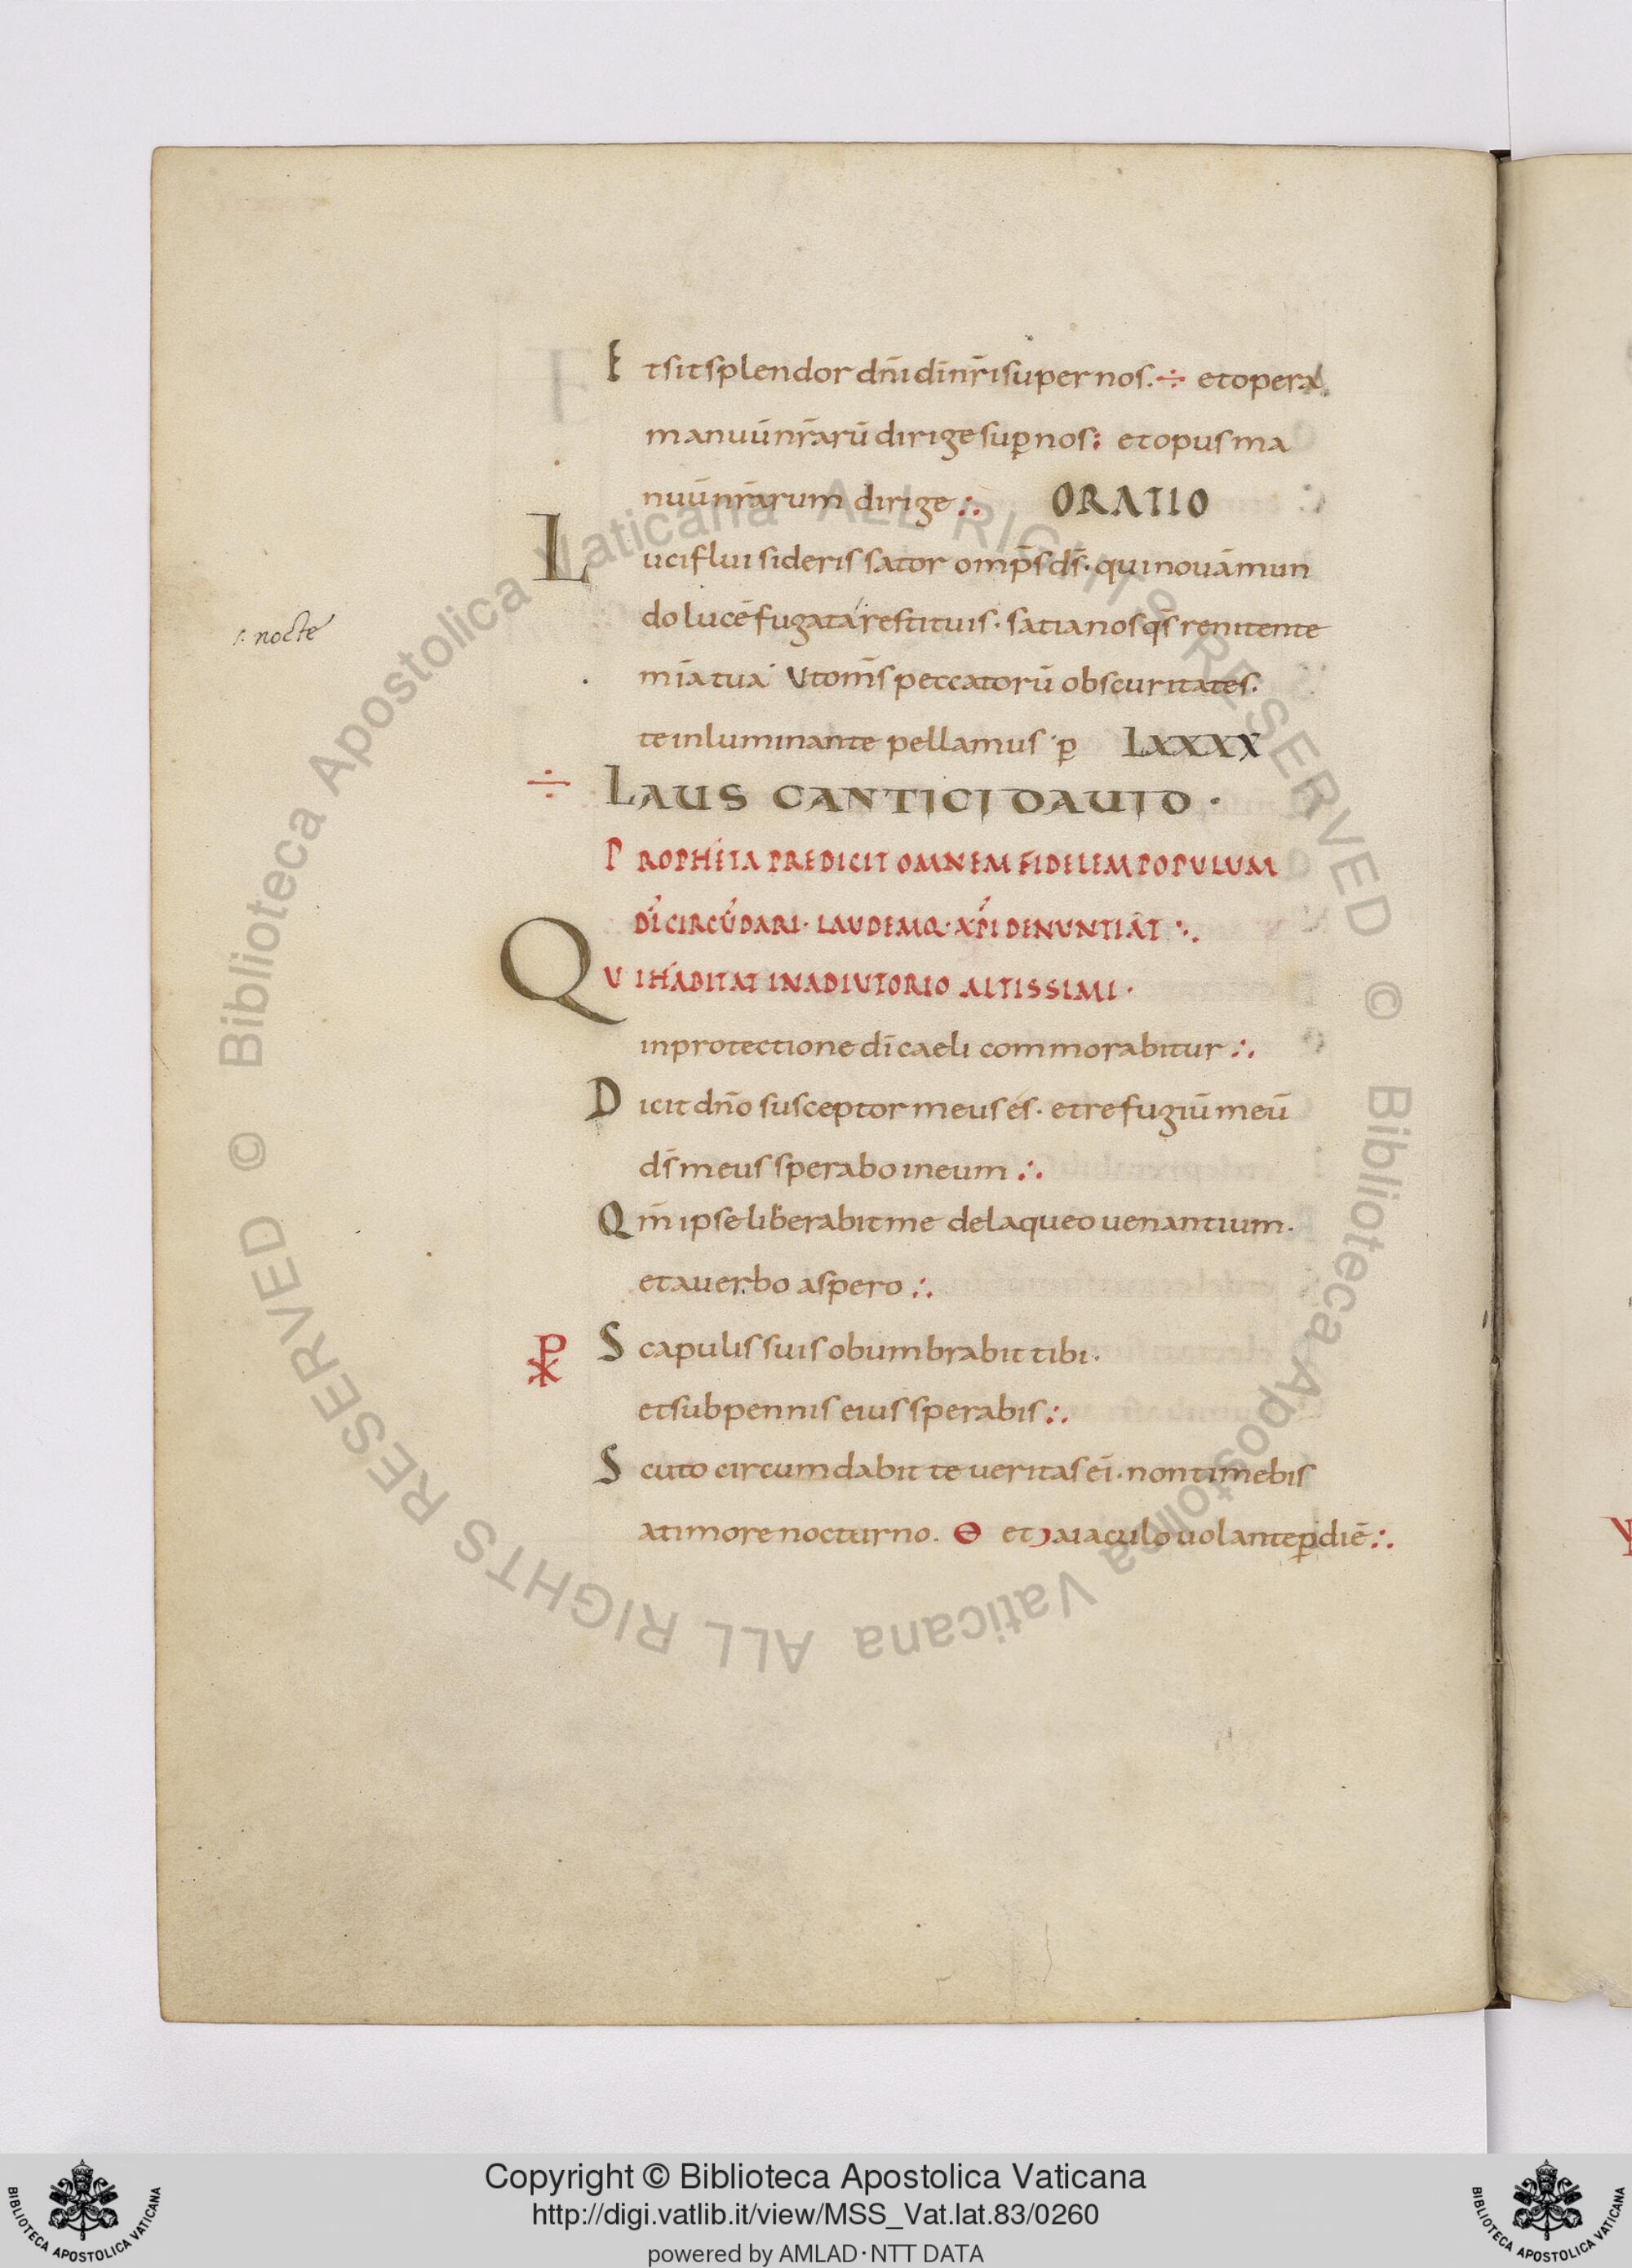 Et sit splendor dn̄i dī nr̄i super nos. ÷ et opera
manuū nr̄arū dirige sup̲ nos: et opus ma
nuū nr̄arum dirige ∴ ORATIO
Luciflui sideris sator omp̄s ds̄· qui nouā mun
do lucē fugata restituis· satia nos qs̄ renitente
s: nocte
mīa tua Ut om̄s peccatorū obscuritates·
te inluminante pellamus · p̲ LXXXX
÷ LAUS CANTICI DAUID ·
PROPHETA PREDICIT OMNEM FIDELEM POPULUM
DĪ CIRCŪDARI· LAUDEMQ· XP̄I DENUNTIAT ∴
QUI HABITAT IN ADIUTORIO ALTISSIMI ·
in protectione dī caeli commorabitur ∴
Dicit dn̄o susceptor meus es· et refugiū meū
ds̄ meus sperabo in eum ∴
Qm̄ ipse liberabit me de laqueo uenantium·
et a uerbo aspero ∴
⳩ Scapulis suis obumbrabit tibi·
et sub pennis eius sperabis ∴
Scuto circumdabit te ueritas eī· non timebis
a timore nocturno. Θ et a iaculo uolante p̲ diē ∴
Copyright © Biblioteca Apostolica Vaticana
http://digi.vatlib.it/view/MSS_Vat.lat.83/0260
powered by AMLAD·NTT DATA
BIBLIOTECA APOSTOLICA VATICANA
BIBLIOTECA APOSTOLICA VATICANA
© Biblioteca Apostolica Vaticana ALL RIGHTS RESERVED
© Biblioteca Apostolica Vaticana ALL RIGHTS RESERVED